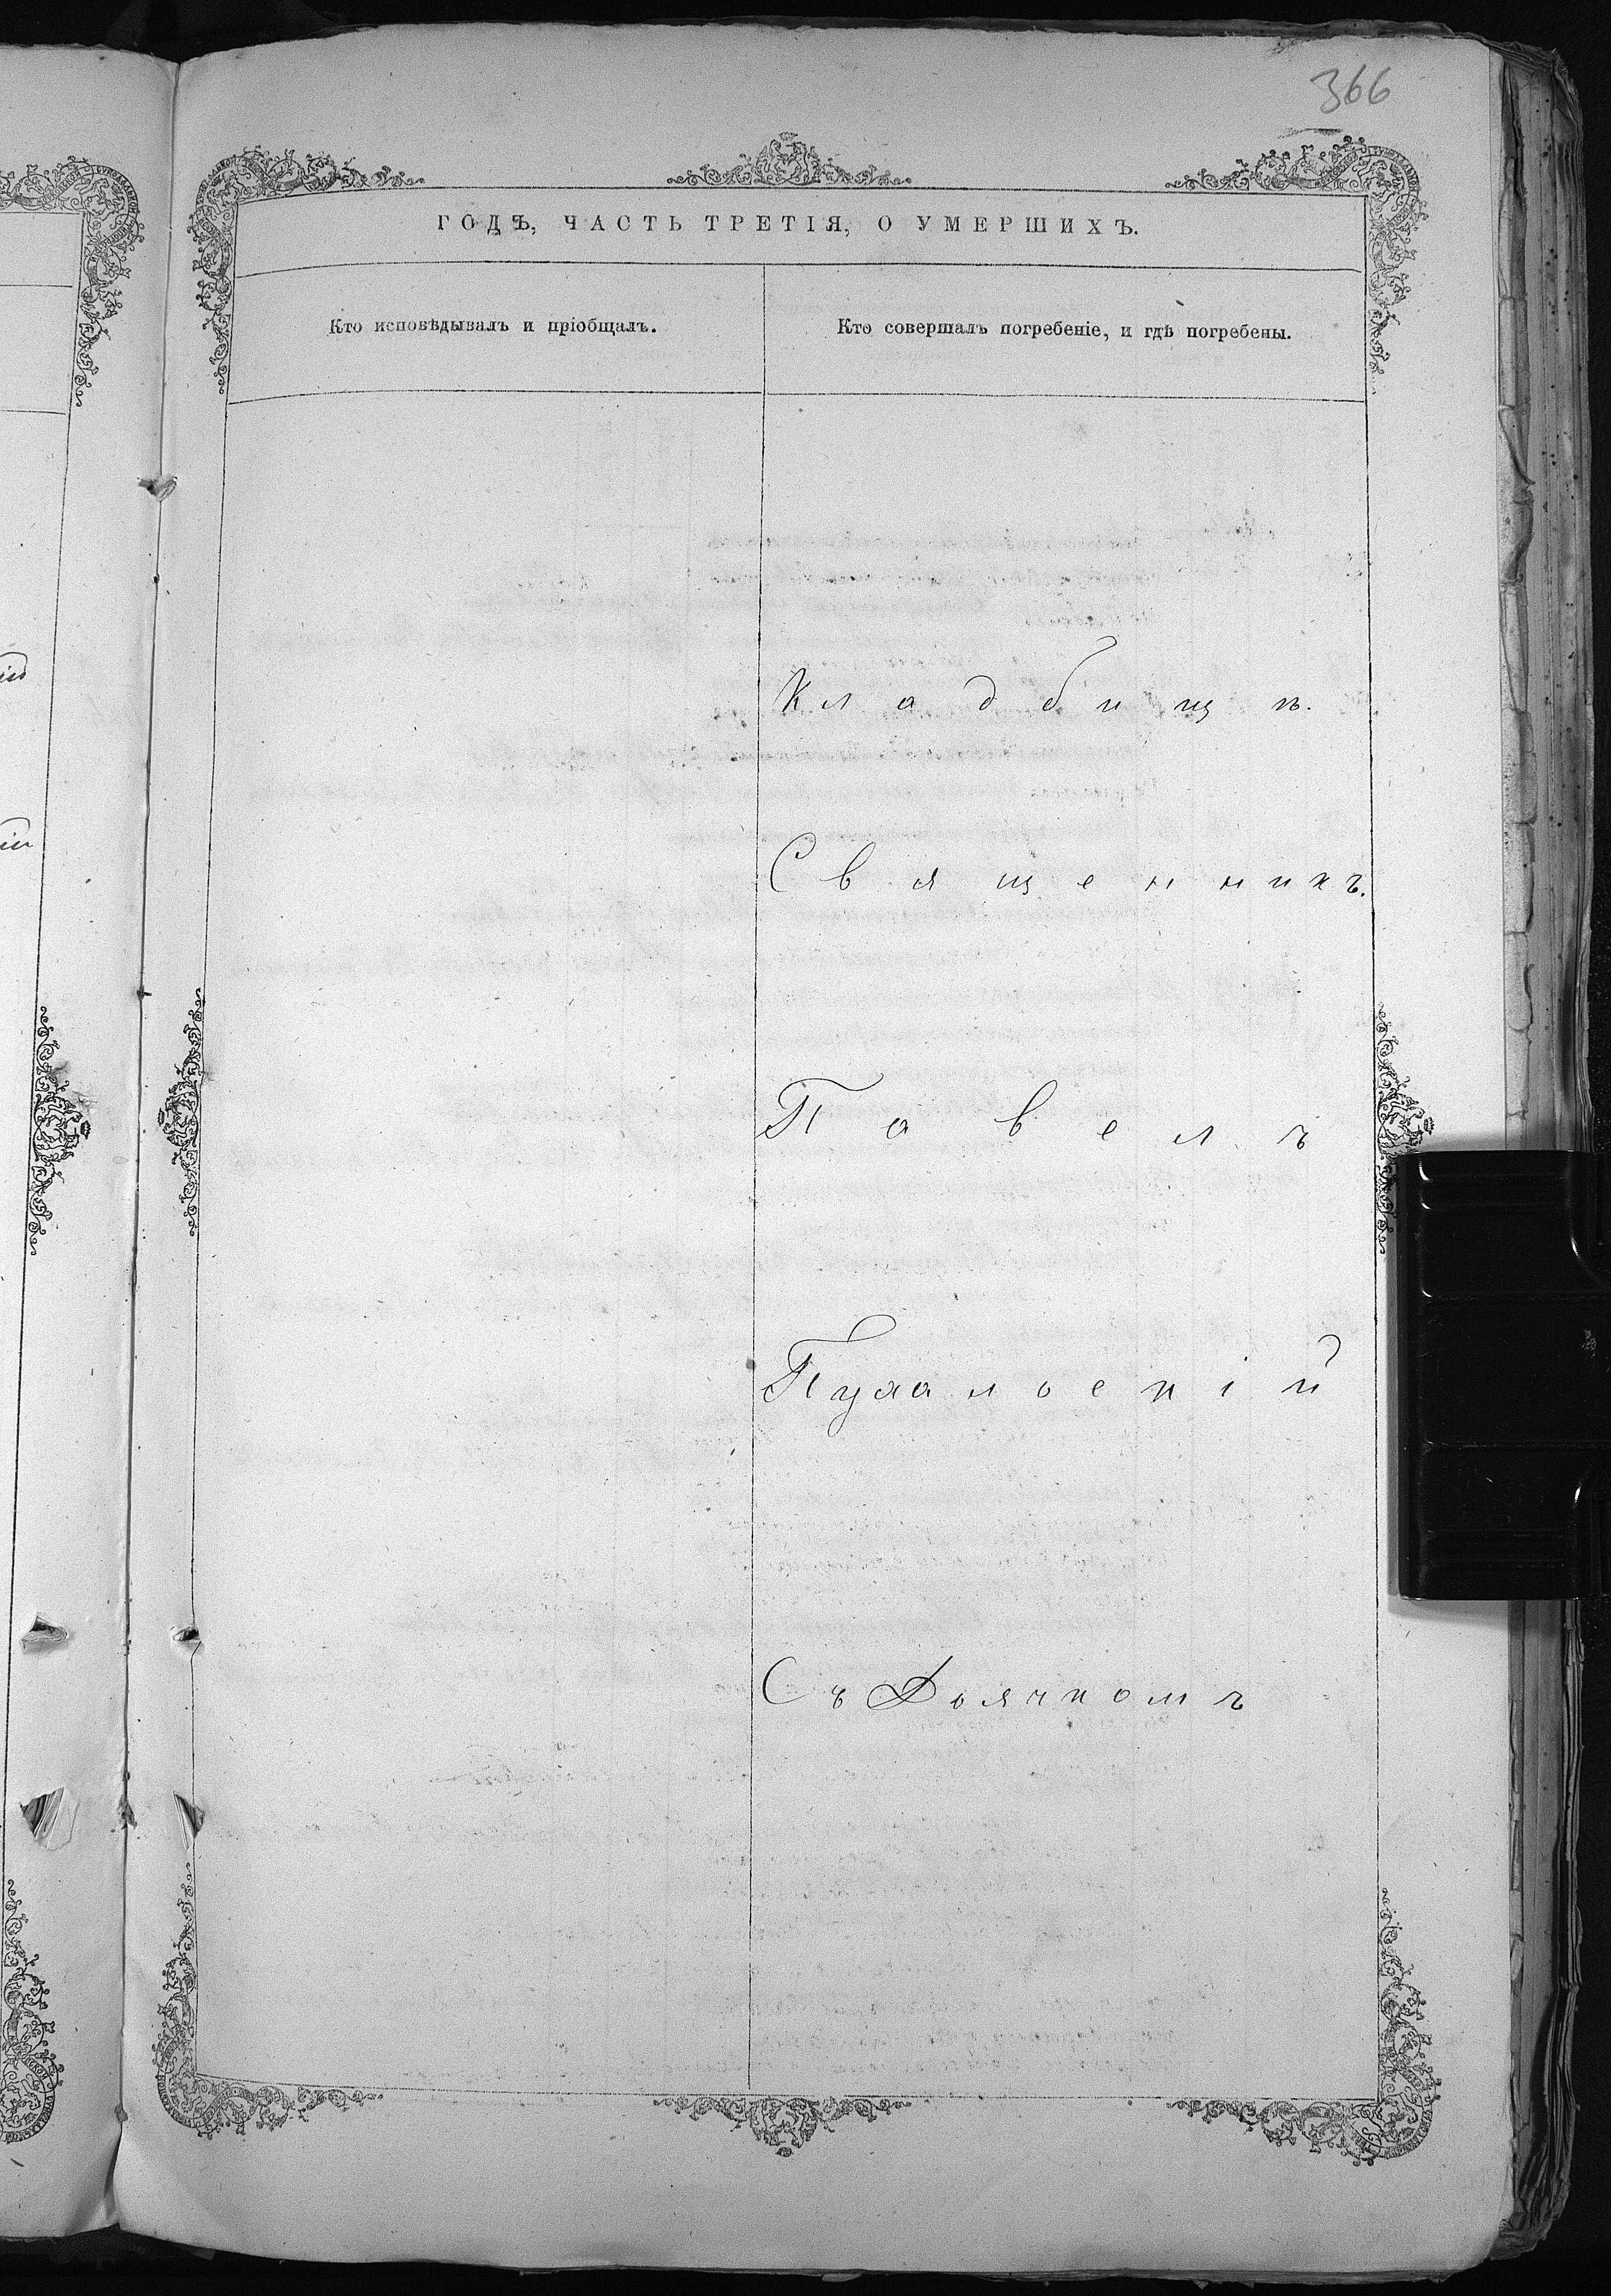 366
ГОДЪ, ЧАСТЬ ТРЕТІЯ, О УМЕРШИХЪ.
Кто исповѣдывалъ и пріобщалъ.
Кто совершалъ погребеніе, и гдѣ погребены.
Кладбищѣ.
Священникъ.
Павелъ
Съ Дьячкомъ